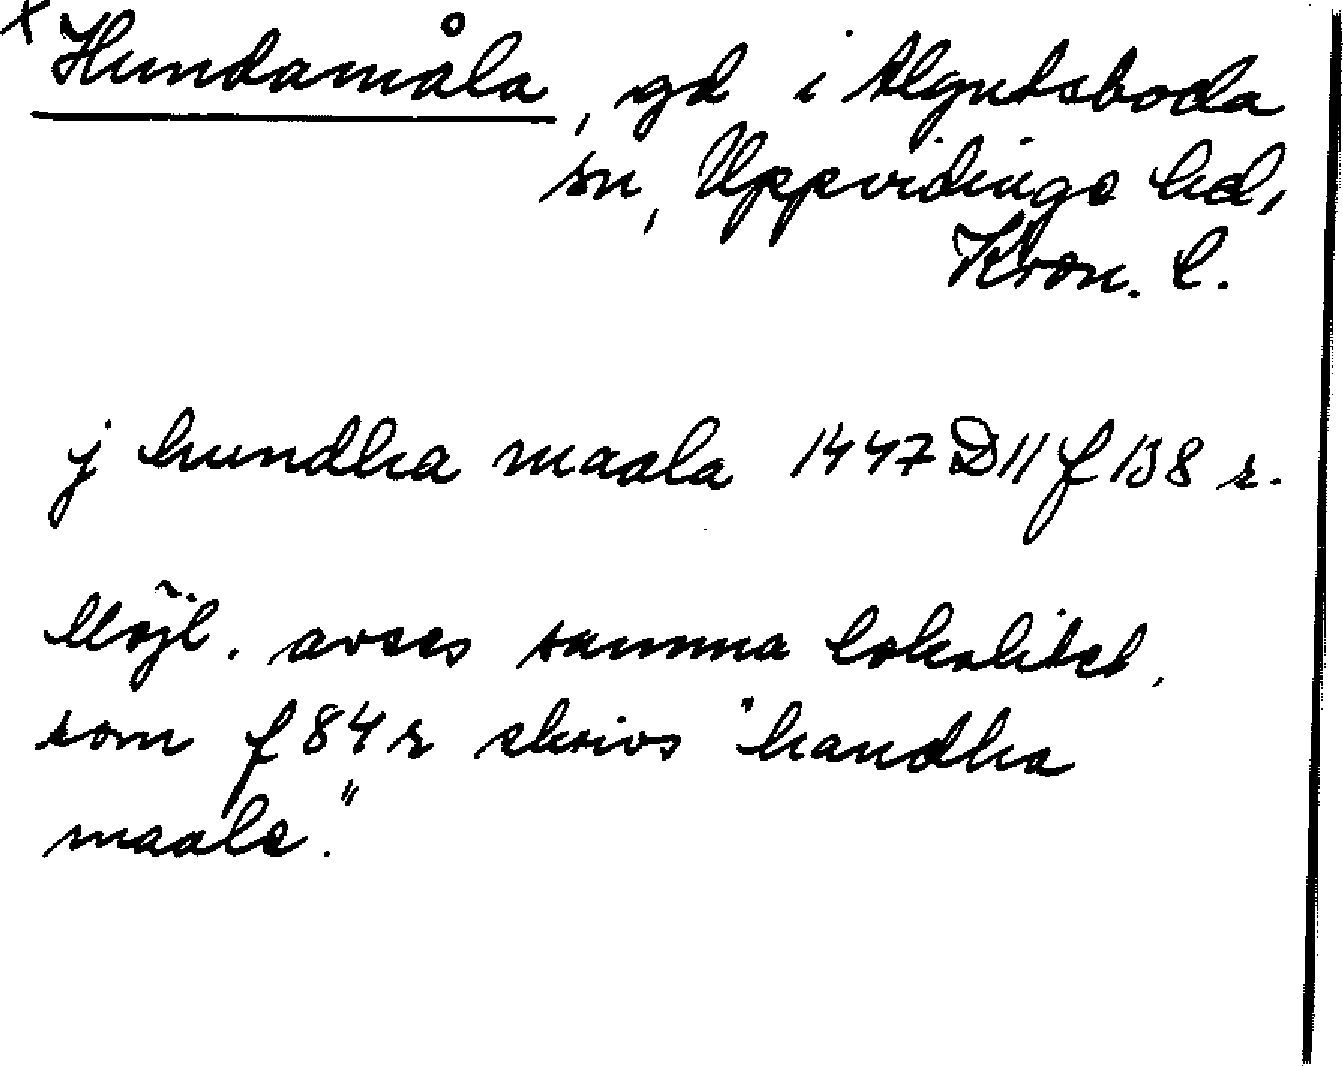 x Hundamåla, gd i Algutsboda
sn, Uppvidinge hd,
Kron. l.
j hundha maala 1447 D11 f 138 r.
Möjl. avses samma lokalitet,
som f 84 r skrivs "handha
maale."